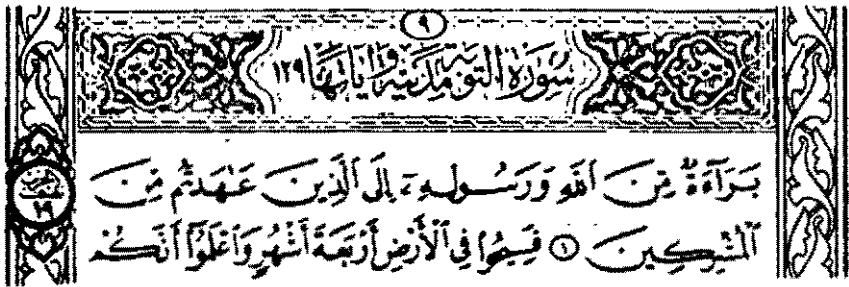 ٩
سُورَةُ التَّوْبَةِ مَدَنِيَّة وَآيَاتُهَا ١٢٩
بَرَآءَةٌ مِّنَ ٱللَّهِ وَرَسُولِهِۦٓ إِلَى ٱلَّذِينَ عَٰهَدتُّم مِّنَ
ٱلْمُشْرِكِينَ ١ فَسِيحُوا۟ فِى ٱلْأَرْضِ أَرْبَعَةَ أَشْهُرٍ وَٱعْلَمُوٓا۟ أَنَّكُمْ